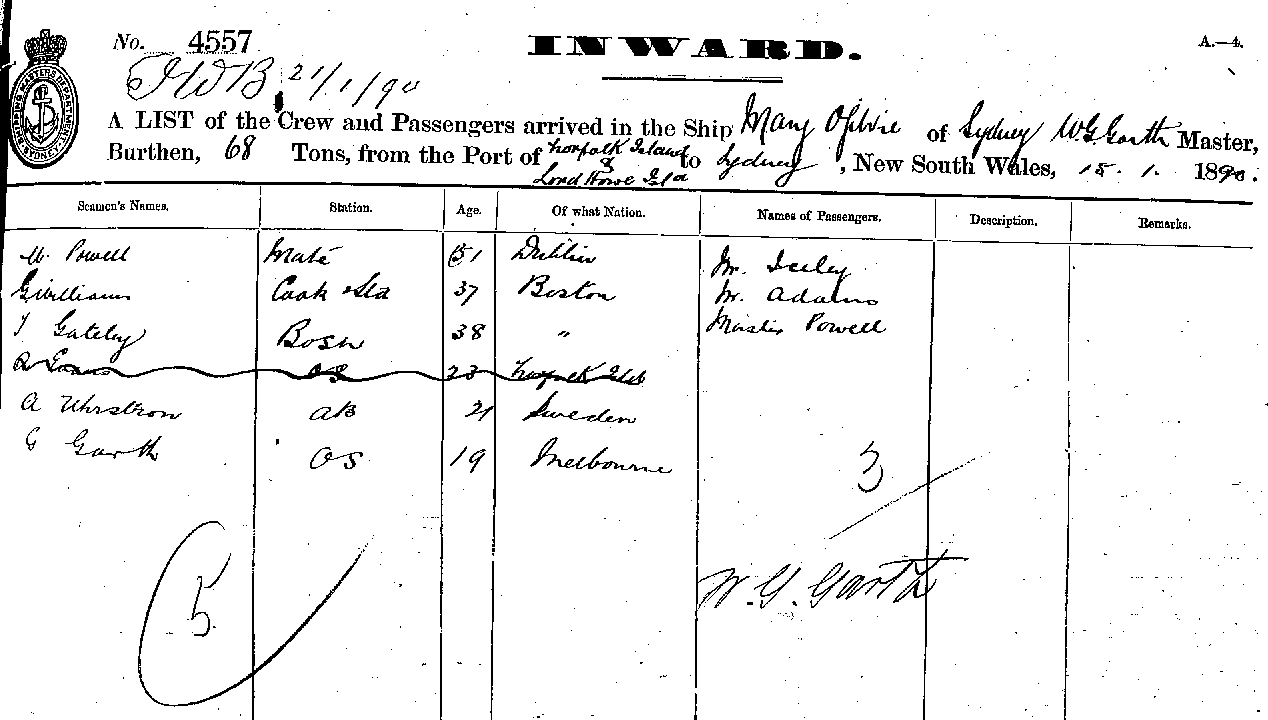 SHIPPING MASTERS DEPARTMENT SYDNEY
No. 4557
INWARD.
A.—4.
21/1/90
A LIST of the Crew and Passengers arrived in the Ship Mary Ogilvie of Sydney W.G. Garth Master,
Burthen, 68 Tons, from the Port of Norfolk Island & Lord Howe Isld to Sydney, New South Wales, 15. 1. 1890.
Seamen's Names. Station. Age. Of what Nation. Names of Passengers. Description. Remarks.
M. Powell Mate 51 Dublin Mr. Seeley
G Williams Cook & Std 37 Boston Mr. Adams
T Gateby Bosn 38 " Master Powell
R Evans OS 23 Norfolk Isld
A Uhrstrom AB 21 Sweden
G Garth OS 19 Melbourne
3
5
W. G. Garth